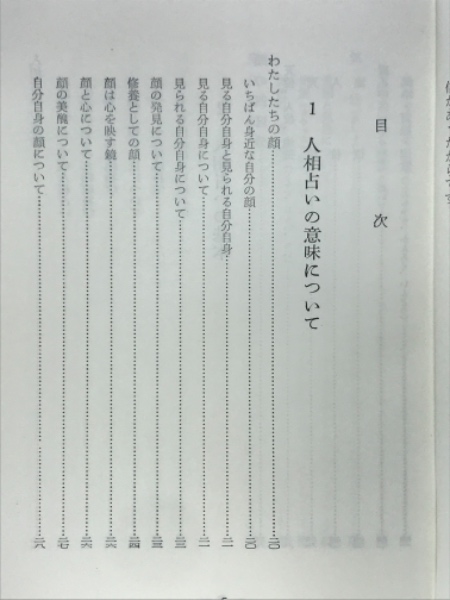 目次
1 人相占いの意味について
わたしたちの顔……二〇
いちばん身近な自分の顔……二〇
見る自分自身と見られる自分自身……二一
見る自分自身について……二一
見られる自分自身について……二二
顔の発見について……二三
修養としての顔……二四
顔は心を映す鏡……二六
顔と心について……二六
顔の美醜について……二七
自分自身の顔について……二八